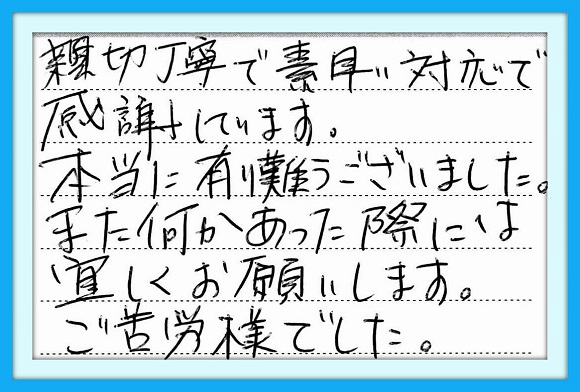 親切丁寧で素早い対応で
感謝しています。
本当に有難うございました。
また何かあった際には
宜しくお願いします。
ご苦労様でした。